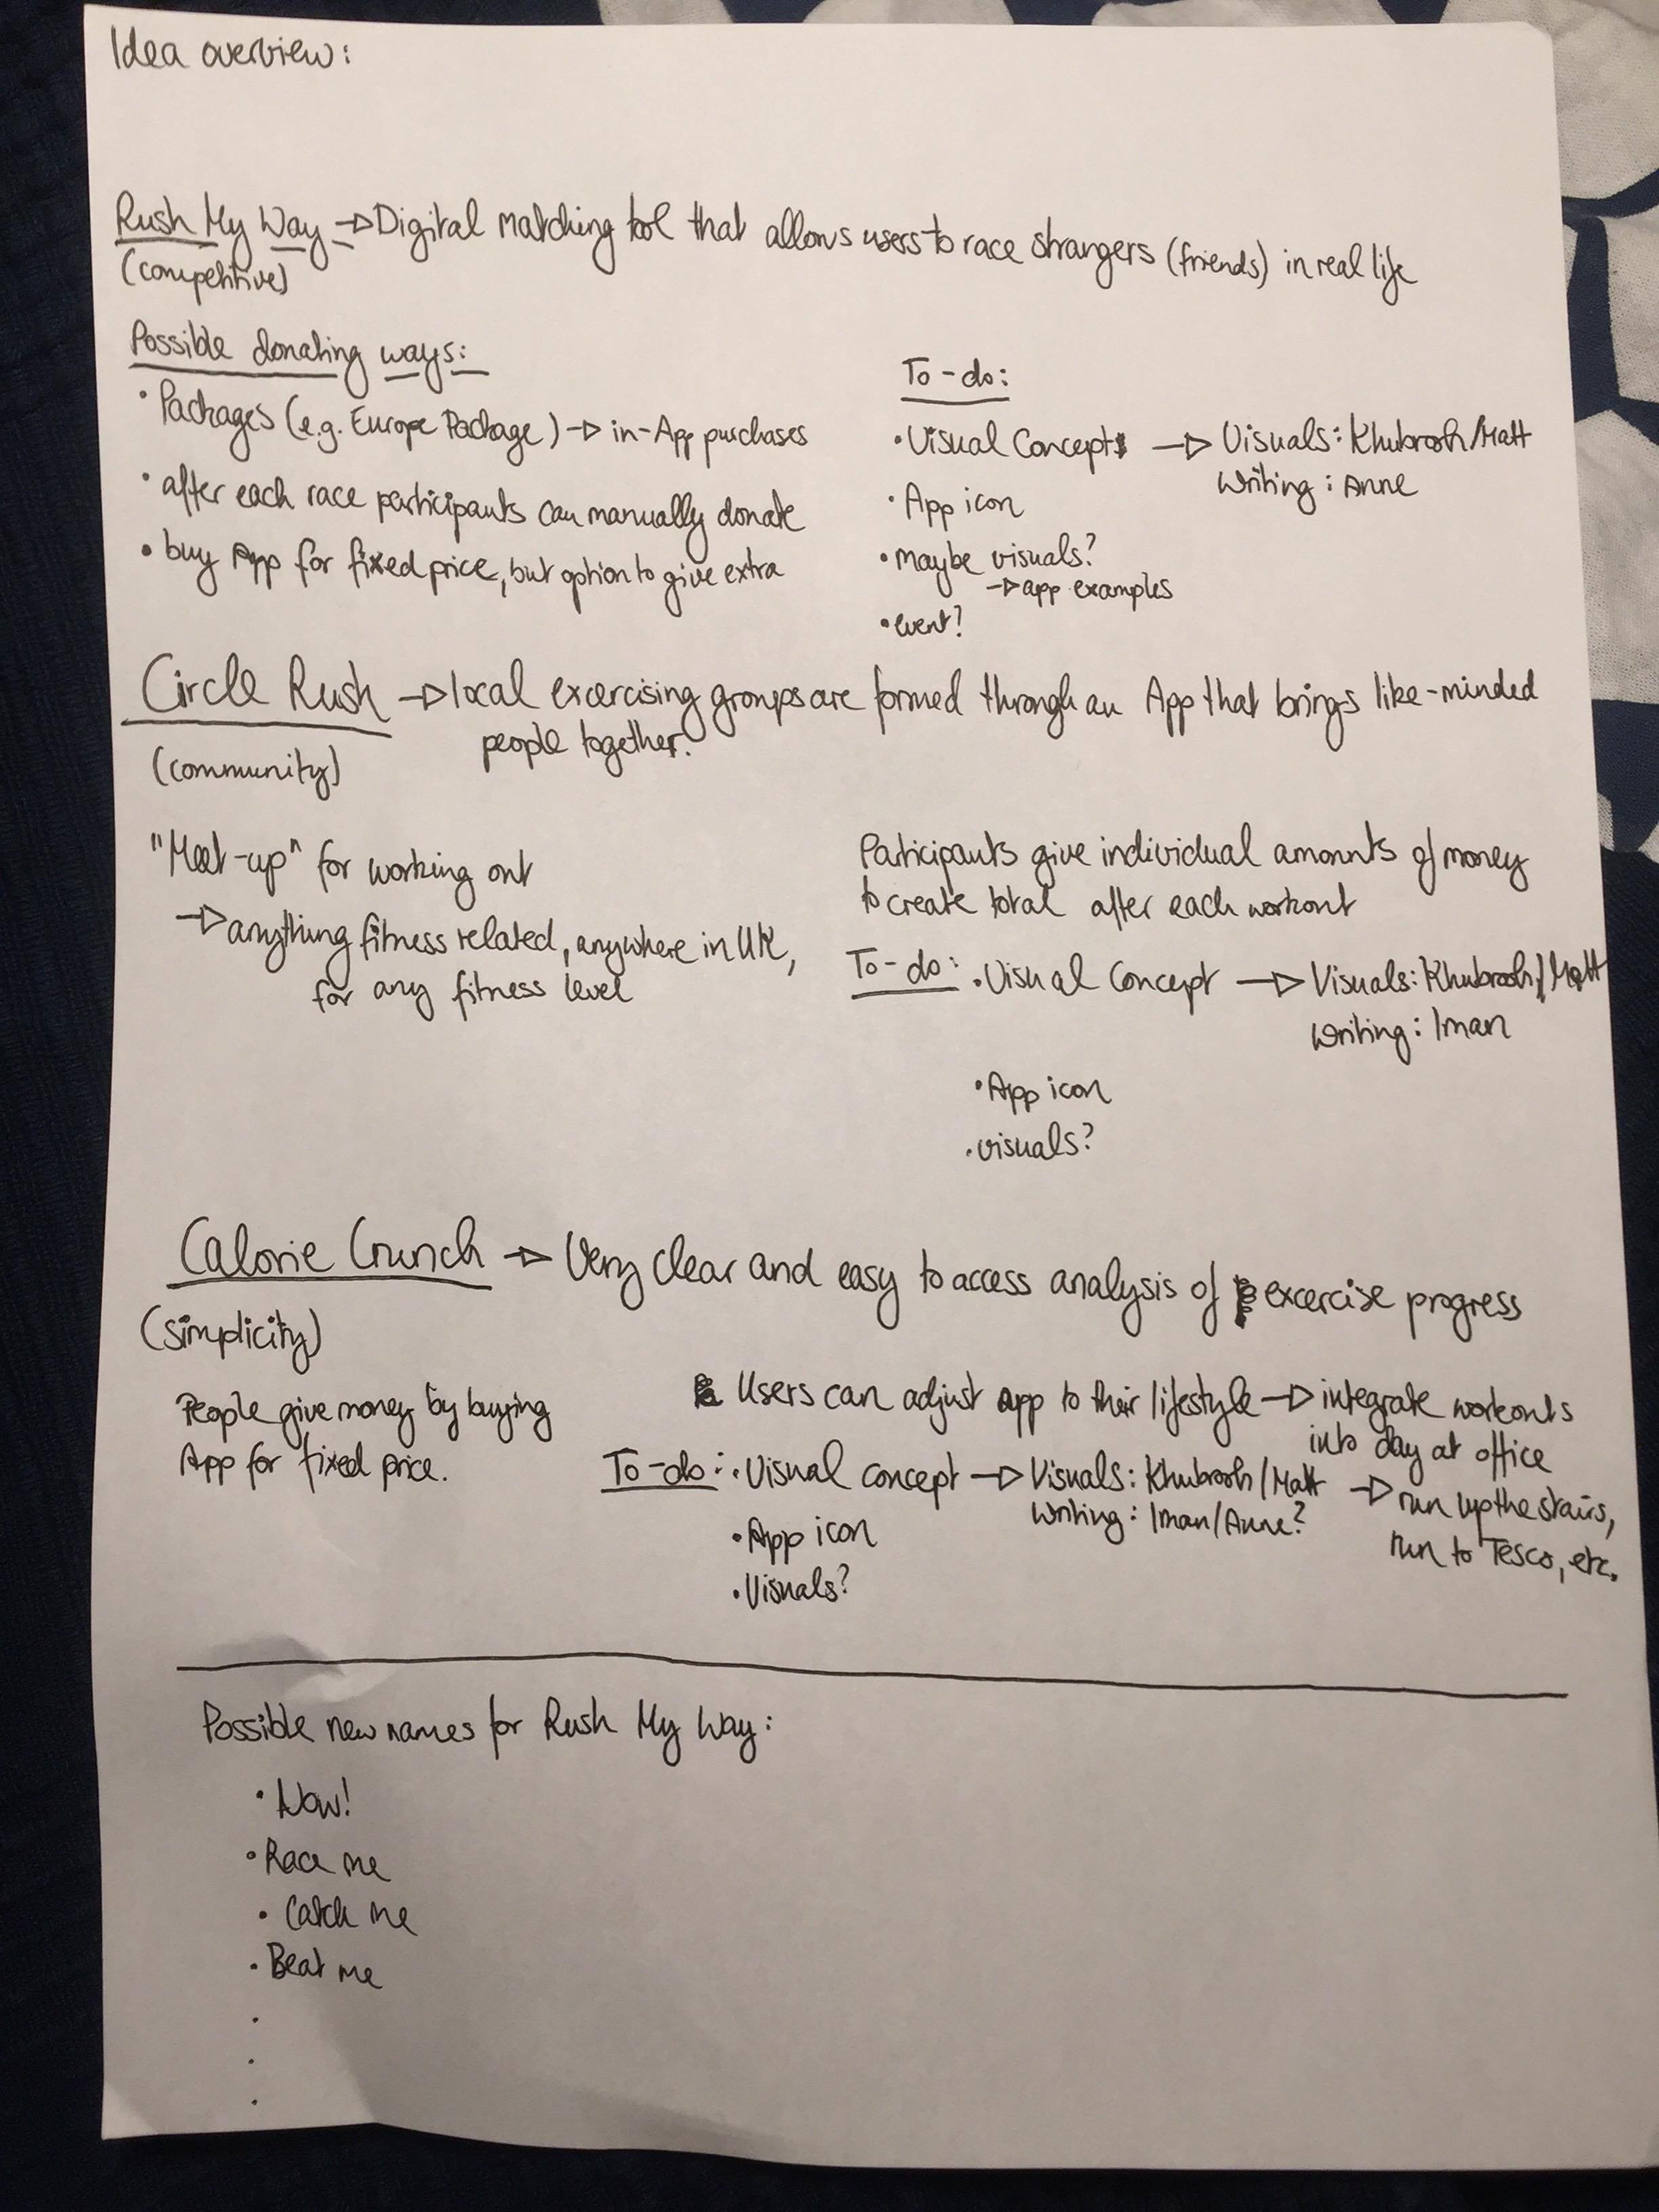 Idea overview:
Rush My Way → Digital matching tool that allows users to race strangers (friends) in real life
(competitive)
Possible donating ways:
• Packages (e.g. Europe Package) → in-App purchases
• after each race participants can manually donate
• buy App for fixed price, but option to give extra
To-do:
• Visual Concept → Visuals: Khubrosh/Matt
Writing: Anne
• App icon
• maybe visuals?
→ app examples
• event?
Circle Rush → local excercising groups are formed through an App that brings like-minded
people together.
(community)
"Meet-up" for working out
→ anything fitness related, anywhere in UK,
for any fitness level
Participants give individual amounts of money
to create total after each workout
To-do: • Visual Concept → Visuals: Khubrosh/Matt
Writing: Iman
• App icon
• visuals?
Calorie Crunch → Very clear and easy to access analysis of excercise progress
(simplicity)
People give money by buying
App for fixed price.
Users can adjust app to their lifestyle → integrate workouts
into day at office
→ run up the stairs,
run to Tesco, etc.
To-do: • Visual concept → Visuals: Khubrosh/Matt
Writing: Iman/Anne?
• App icon
• Visuals?
Possible new names for Rush My Way:
• Now!
• Race me
• Catch me
• Beat me
•
•
•